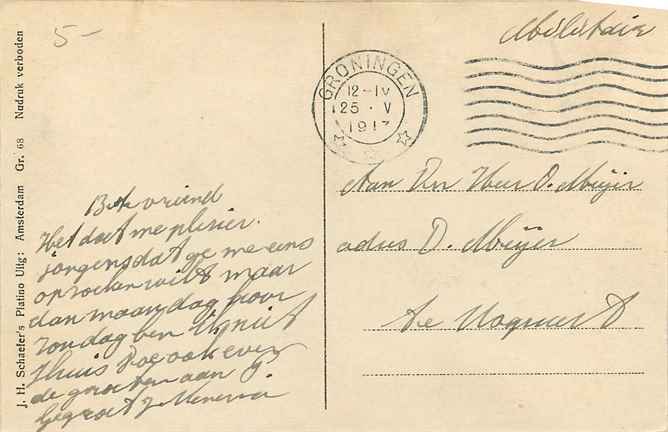 5-
Militair
GRONINGEN
12-IV
25 · V
1917
J. H. Schaefer's Platino Uitg: Amsterdam Gr. 68 Nadruk verboden
Beste vriend
Het doet me plesier
jongens dat ge me eens
opzoeken wilt maar
dan maandag hoor
zondag ben ik niet
thuis Doe ook even
de groeten aan J.
Gegroet J
Aan Den Heer D. Meijer
adres D. Meijer
te